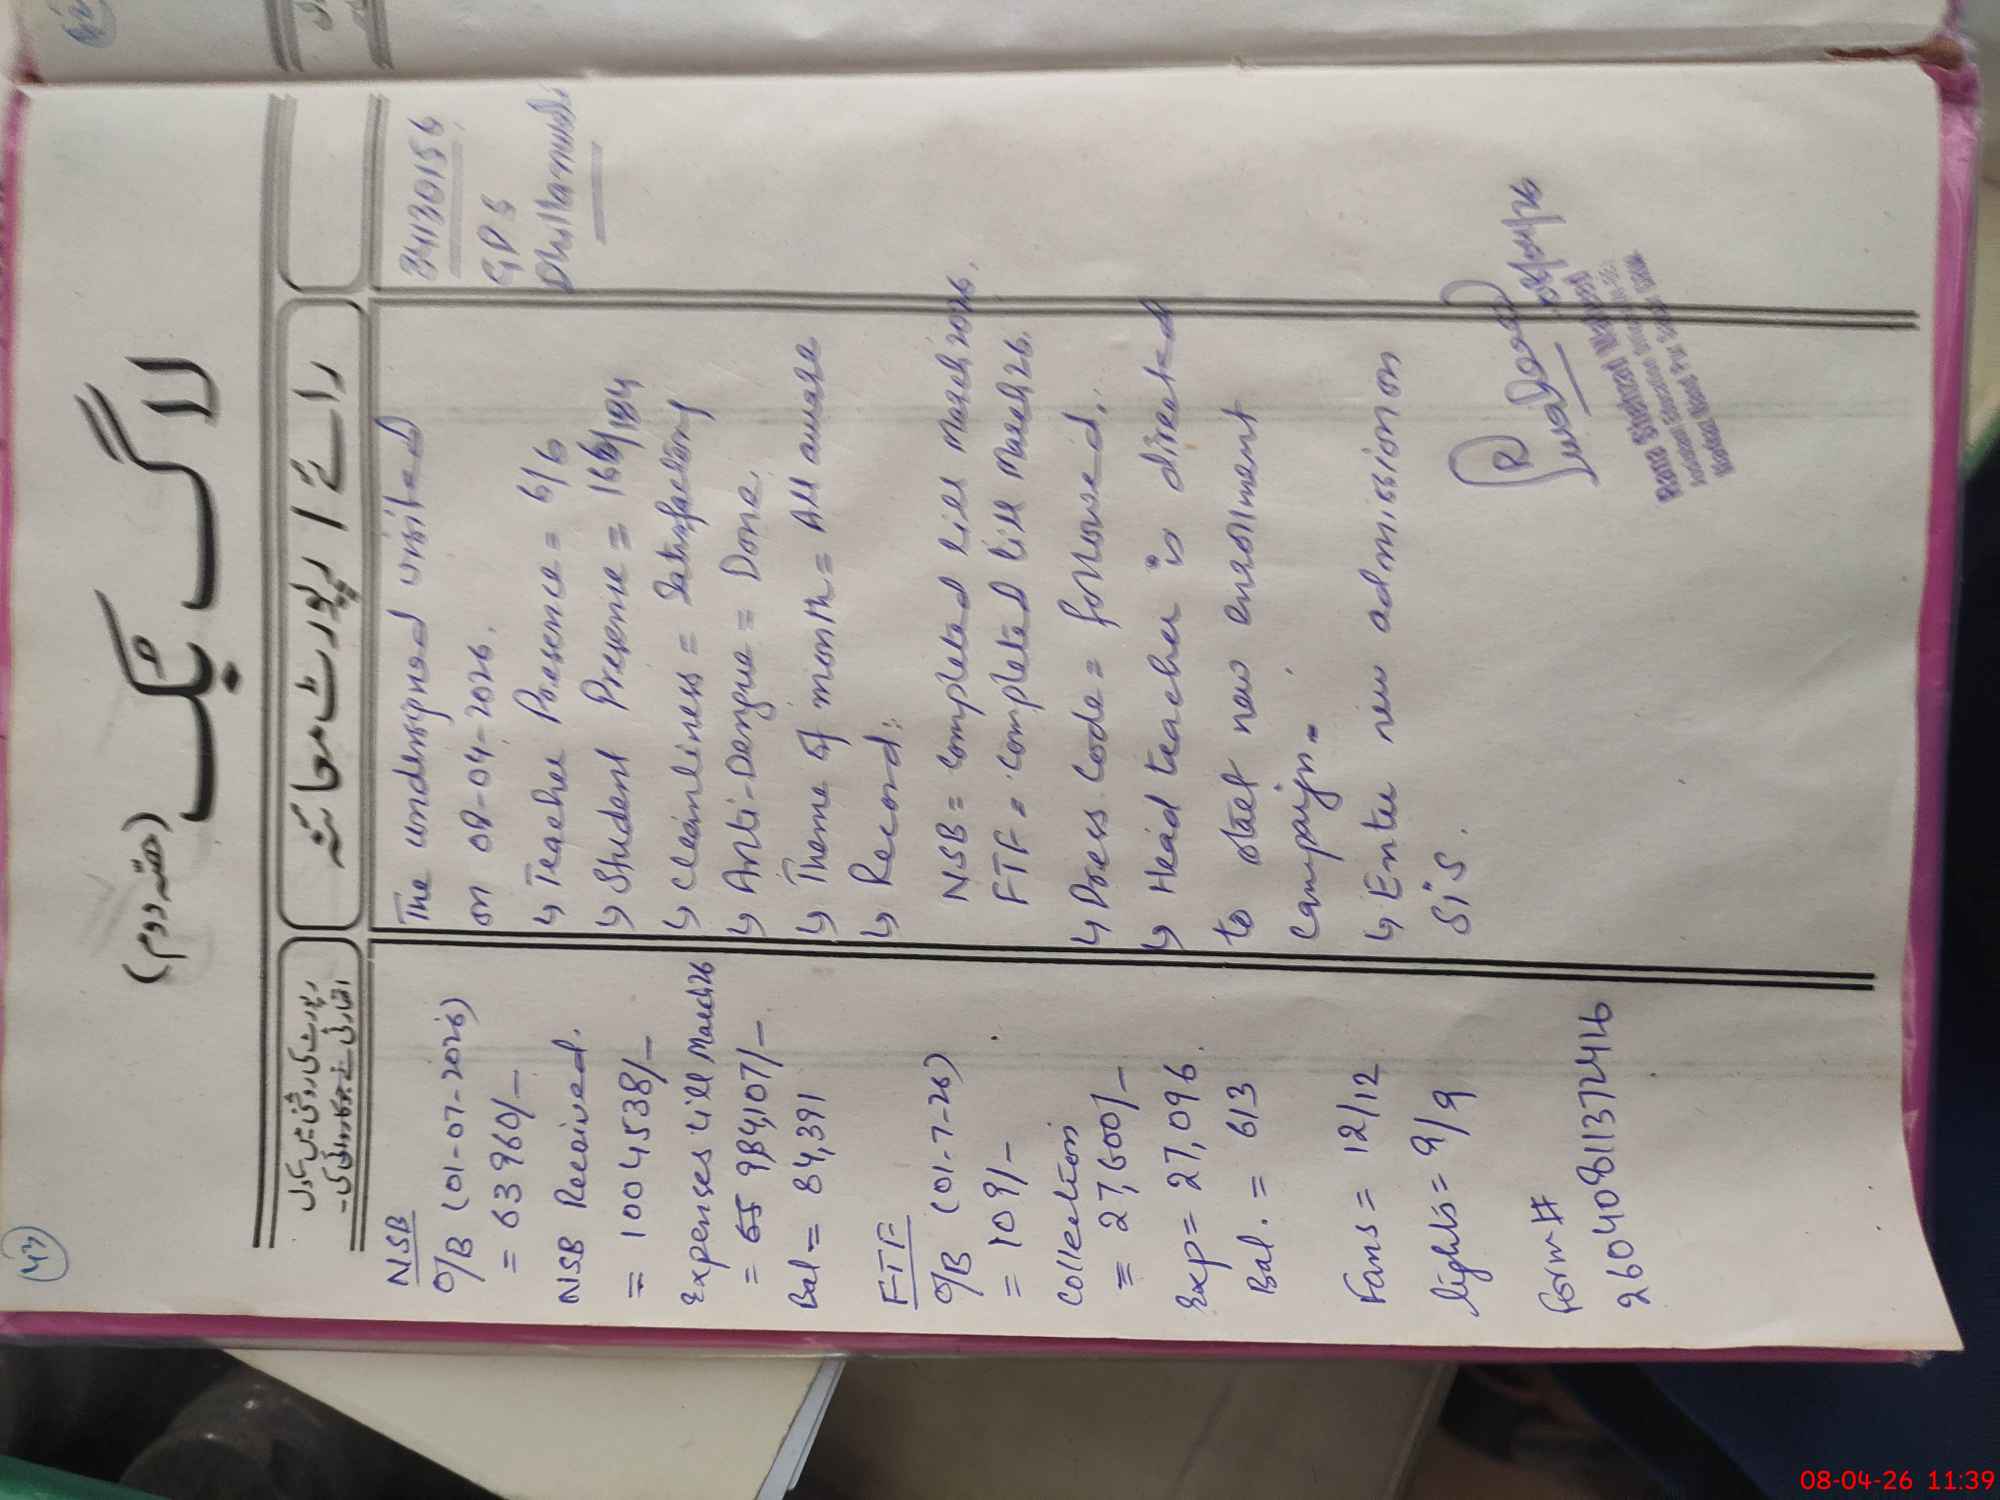 43
لاگ بک
(حصّہ دوم)
رائے / رپورٹ معائنہ
رپورٹ کی روشنی میں سکول
اتھارٹی نے جو کاروائی کی۔
34130156
GPS
The undersigned visited
on 08-04-2026.
↳ Teacher Presence = 6/6
↳ Student Presence = 166/184
↳ Cleanliness = Satisfactory
↳ Anti-Dengue = Done.
↳ Theme of month = All aware
↳ Record:
NSB = completed till March 2026.
FTF = completed till March 26.
↳ Process Code = followed.
↳ Head teacher is directed
to start new enrollment
campaign.
↳ Enter new admission on
SIS.
08/04/26
Rana Shahzad
NSB
O/B (01-07-2026)
= 63960/-
NSB Received.
= 1004538/-
Expenses till March 26
= 984,107/-
Bal = 84,391
FTF
O/B (01-7-26)
= 109/-
Collection
= 27,600/-
Exp = 27,096
Bal. = 613
Fans = 12/12
lights = 9/9
Form #
2604081137246
08-04-26 11:39